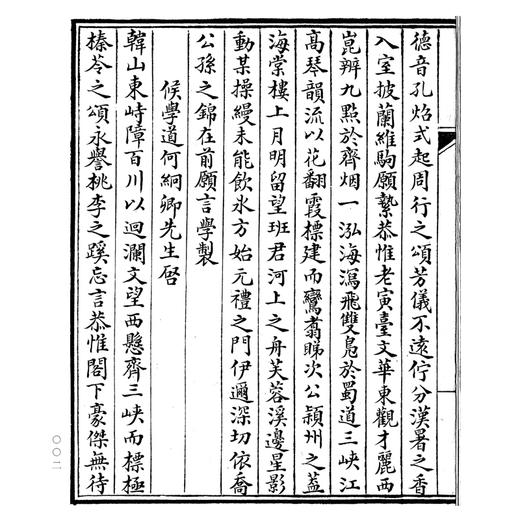 德音孔炤式起周行之頌芳儀不遠佇分漢署之香
入室披蘭維駒願縶恭惟老寅臺文華東觀才麗西
崑辨九點於齊烟一泓海瀉飛雙鳧於蜀道三峽江
高琴韻流以花翻霞標建而鸞翥睇次公潁州之蓋
海棠樓上月明留望班君河上之舟芙蓉溪邊星影
動某操縵未能飲氷方始元禮之門伊邇深切依喬
公孫之錦在前願言學製
候學道何絅卿先生啓
韓山東峙障百川以迴瀾文望西懸齊三峽而標極
榛苓之頌永譽桃李之蹊忘言恭惟閣下豪傑無待